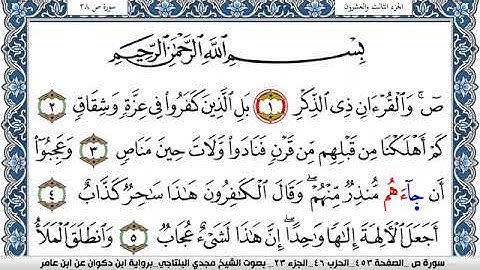 الجزء الثالث والعشرون
سورة ص ٣٨
بِسْمِ اللَّهِ الرَّحْمَٰنِ الرَّحِيمِ
صٓۚ وَالْقُرْءَانِ ذِي الذِّكْرِ ١ بَلِ الَّذِينَ كَفَرُوا فِي عِزَّةٍ وَشِقَاقٍ ٢
كَمْ أَهْلَكْنَا مِن قَبْلِهِم مِّن قَرْنٍ فَنَادَوا وَّلَاتَ حِينَ مَنَاصٍ ٣ وَعَجِبُوٓا
أَن جَآءَهُم مُّنذِرٌ مِّنْهُمْۖ وَقَالَ الْكَٰفِرُونَ هَٰذَا سَٰحِرٌ كَذَّابٌ ٤
أَجَعَلَ الْءَالِهَةَ إِلَٰهًا وَٰحِدًاۖ إِنَّ هَٰذَا لَشَيْءٌ عُجَابٌ ٥ وَانطَلَقَ الْمَلَأُ
سورة ص _الصفحة ٤٥٣_الحزب ٤٦_الجزء ٢٣_ بصوت الشيخ مجدي البلتاجي_برواية ابن ذكوان عن ابن عامر